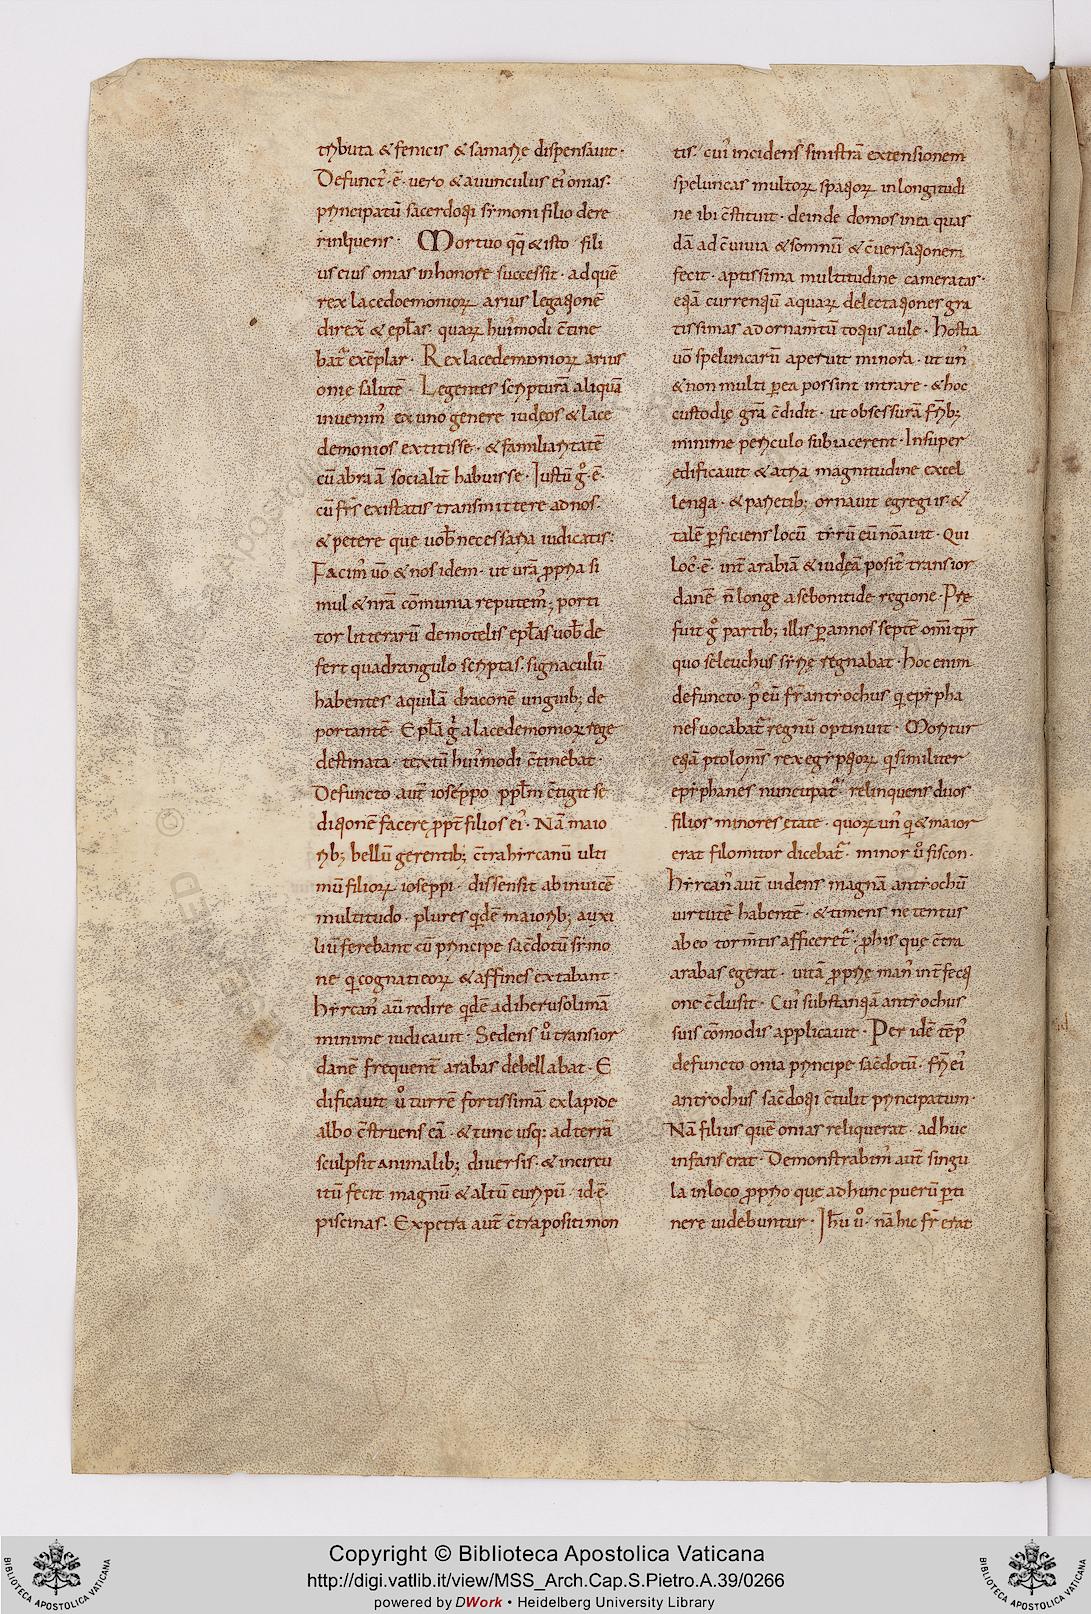 tributa & fenicis & samarie dispensauit·
Defunct᷒·ē· uero & auunculus ei᷒ onias·
principatū sacerdotii sẏmoni filio dere
rinlquens· Mortuo qq̄ & isto fili
us eius onias in honore successit· ad quē
rex lacedoemonioꝝ arius legationē
direx̄ & epl̄as· quaꝝ hui᷒modi c̄tine
bat᷒ exēplar· Rex lacedemonioꝝ arius
onie salutē· Legentes scripturā aliquā
inuenim᷒ ex uno genere iudeos & lace
demonios extitisse· & familiaritatē
cū abraā socialit̄ habuisse· Iustū g̊·ē·
cū fr̄s existatis transmittere ad nos·
& petere que uob̄ necessaria iudicatis:
Facim᷒ ūo & nos idem· ut ūra ꝓpria si
mul & nr̄a cōmunia reputem᷒; porti
tor litterarū demotelis epl̄as uob̄ de
fert quadrangulo scriptas· signaculū
habentes aquilā draconē unguib; de
portantē· Epl̄a gͥ a lacedemonioꝝ rege
destinata· textū hui᷒modi c̄tinebat·
Defuncto aut̄ ioseppo ppl̄m c̄tigit se
ditionē facere ꝓpt̄ filios ei᷒· Nā maio
rib; bellū gerentib; c̄tra hẏrcanū ulti
mū filioꝝ ioseppi· dissensit ab inuicē
multitudo· plures qͥdē maiorib; auxi
liū ferebant cū principe sac̄dotū sẏmo
ne qͥ cognaticoꝝ & affines extabant·
hẏrcan᷒ aū redire qͥdē ad iherusolimā
minime iudicauit· Sedens ů transior
danē frequent̄ arabas debellabat· E
dificauit ů turrē fortissimā ex lapide
albo c̄struens eā· & tunc usq; ad terrā
sculpsit animalib; diuersis· & in circu
itū fecit magnū & altū euripū· id·ē·
piscinas· Ex petra aut̄ c̄trapositi mon
tis· cui᷒ incidens sinistrā extensionem
speluncas multoꝝ spatioꝝ in longitudi
ne ibi c̄stituit· deinde domos in ea quas
dā ad c̄uiuia & somnū & c̄uersationem
fecit· aptissima multitudine cameratas·
etiā currentiū aquaꝝ delectationes gra
tissimas ad ornam̄tū totius aule· hostia
ūo speluncarū aperuit minora· ut un᷒
& non multi ꝑ ea possint intrare· & hoc
custodię grā c̄didit· ut obsessurā fr̄ib;
minime periculo subiacerent· Insuper
edificauit & atria magnitudine excel
lentia· & parietib; ornauit egregiis· &
talē ꝑficiens locū tẏrū eū nōauit· Qui
loc᷒·ē· int̄ arabiā & iudęā posit᷒ transior
danē n̄ longe a sebonitide regione· Pre
fuit g̊ partib; illis ꝑ annos septē om̄i tp̄r
quo seleuchus sẏrie regnabat· hoc enim
defuncto· p᷒ eū fr̄ antẏochus qͥ epẏpha
nes uocabat᷒ regnū optinuit· Moritur
etiā ptolom᷒s rex egẏptioꝝ qͥ similiter
epẏphanes nuncupat᷒· relinquens duos
filios minores etate· quoꝝ un᷒ qͥ & maior
erat filomitor dicebat᷒· minor ů fiscon·
hẏrcan᷒ aut̄ uidens magnā antẏochū
uirtutē habentē· & timens ne tentus
ab eo torm̄tis afficeret᷒· ꝓ his que c̄tra
arabas egerat· uitā ꝓprie man᷒ int̄fecti
one c̄clusit· Cui᷒ substantiā antẏochus
suis cōmodis applicauit· Per idē tēp᷒
defuncto onia principe sac̄dotū· fr̄i ei᷒
antẏochus sac̄dotii c̄tulit principatum·
Nā filius quē onias reliquerat· ad huc
infans erat· Demonstrabim᷒ aut̄ singu
la in loco ꝓprio que ad hunc puerū ꝑti
nere uidebuntur· Ih̄u ů· nā hic fr̄ erat
Copyright © Biblioteca Apostolica Vaticana
http://digi.vatlib.it/view/MSS_Arch.Cap.S.Pietro.A.39/0266
powered by DWork • Heidelberg University Library
BIBLIOTECA APOSTOLICA VATICANA
BIBLIOTECA APOSTOLICA VATICANA